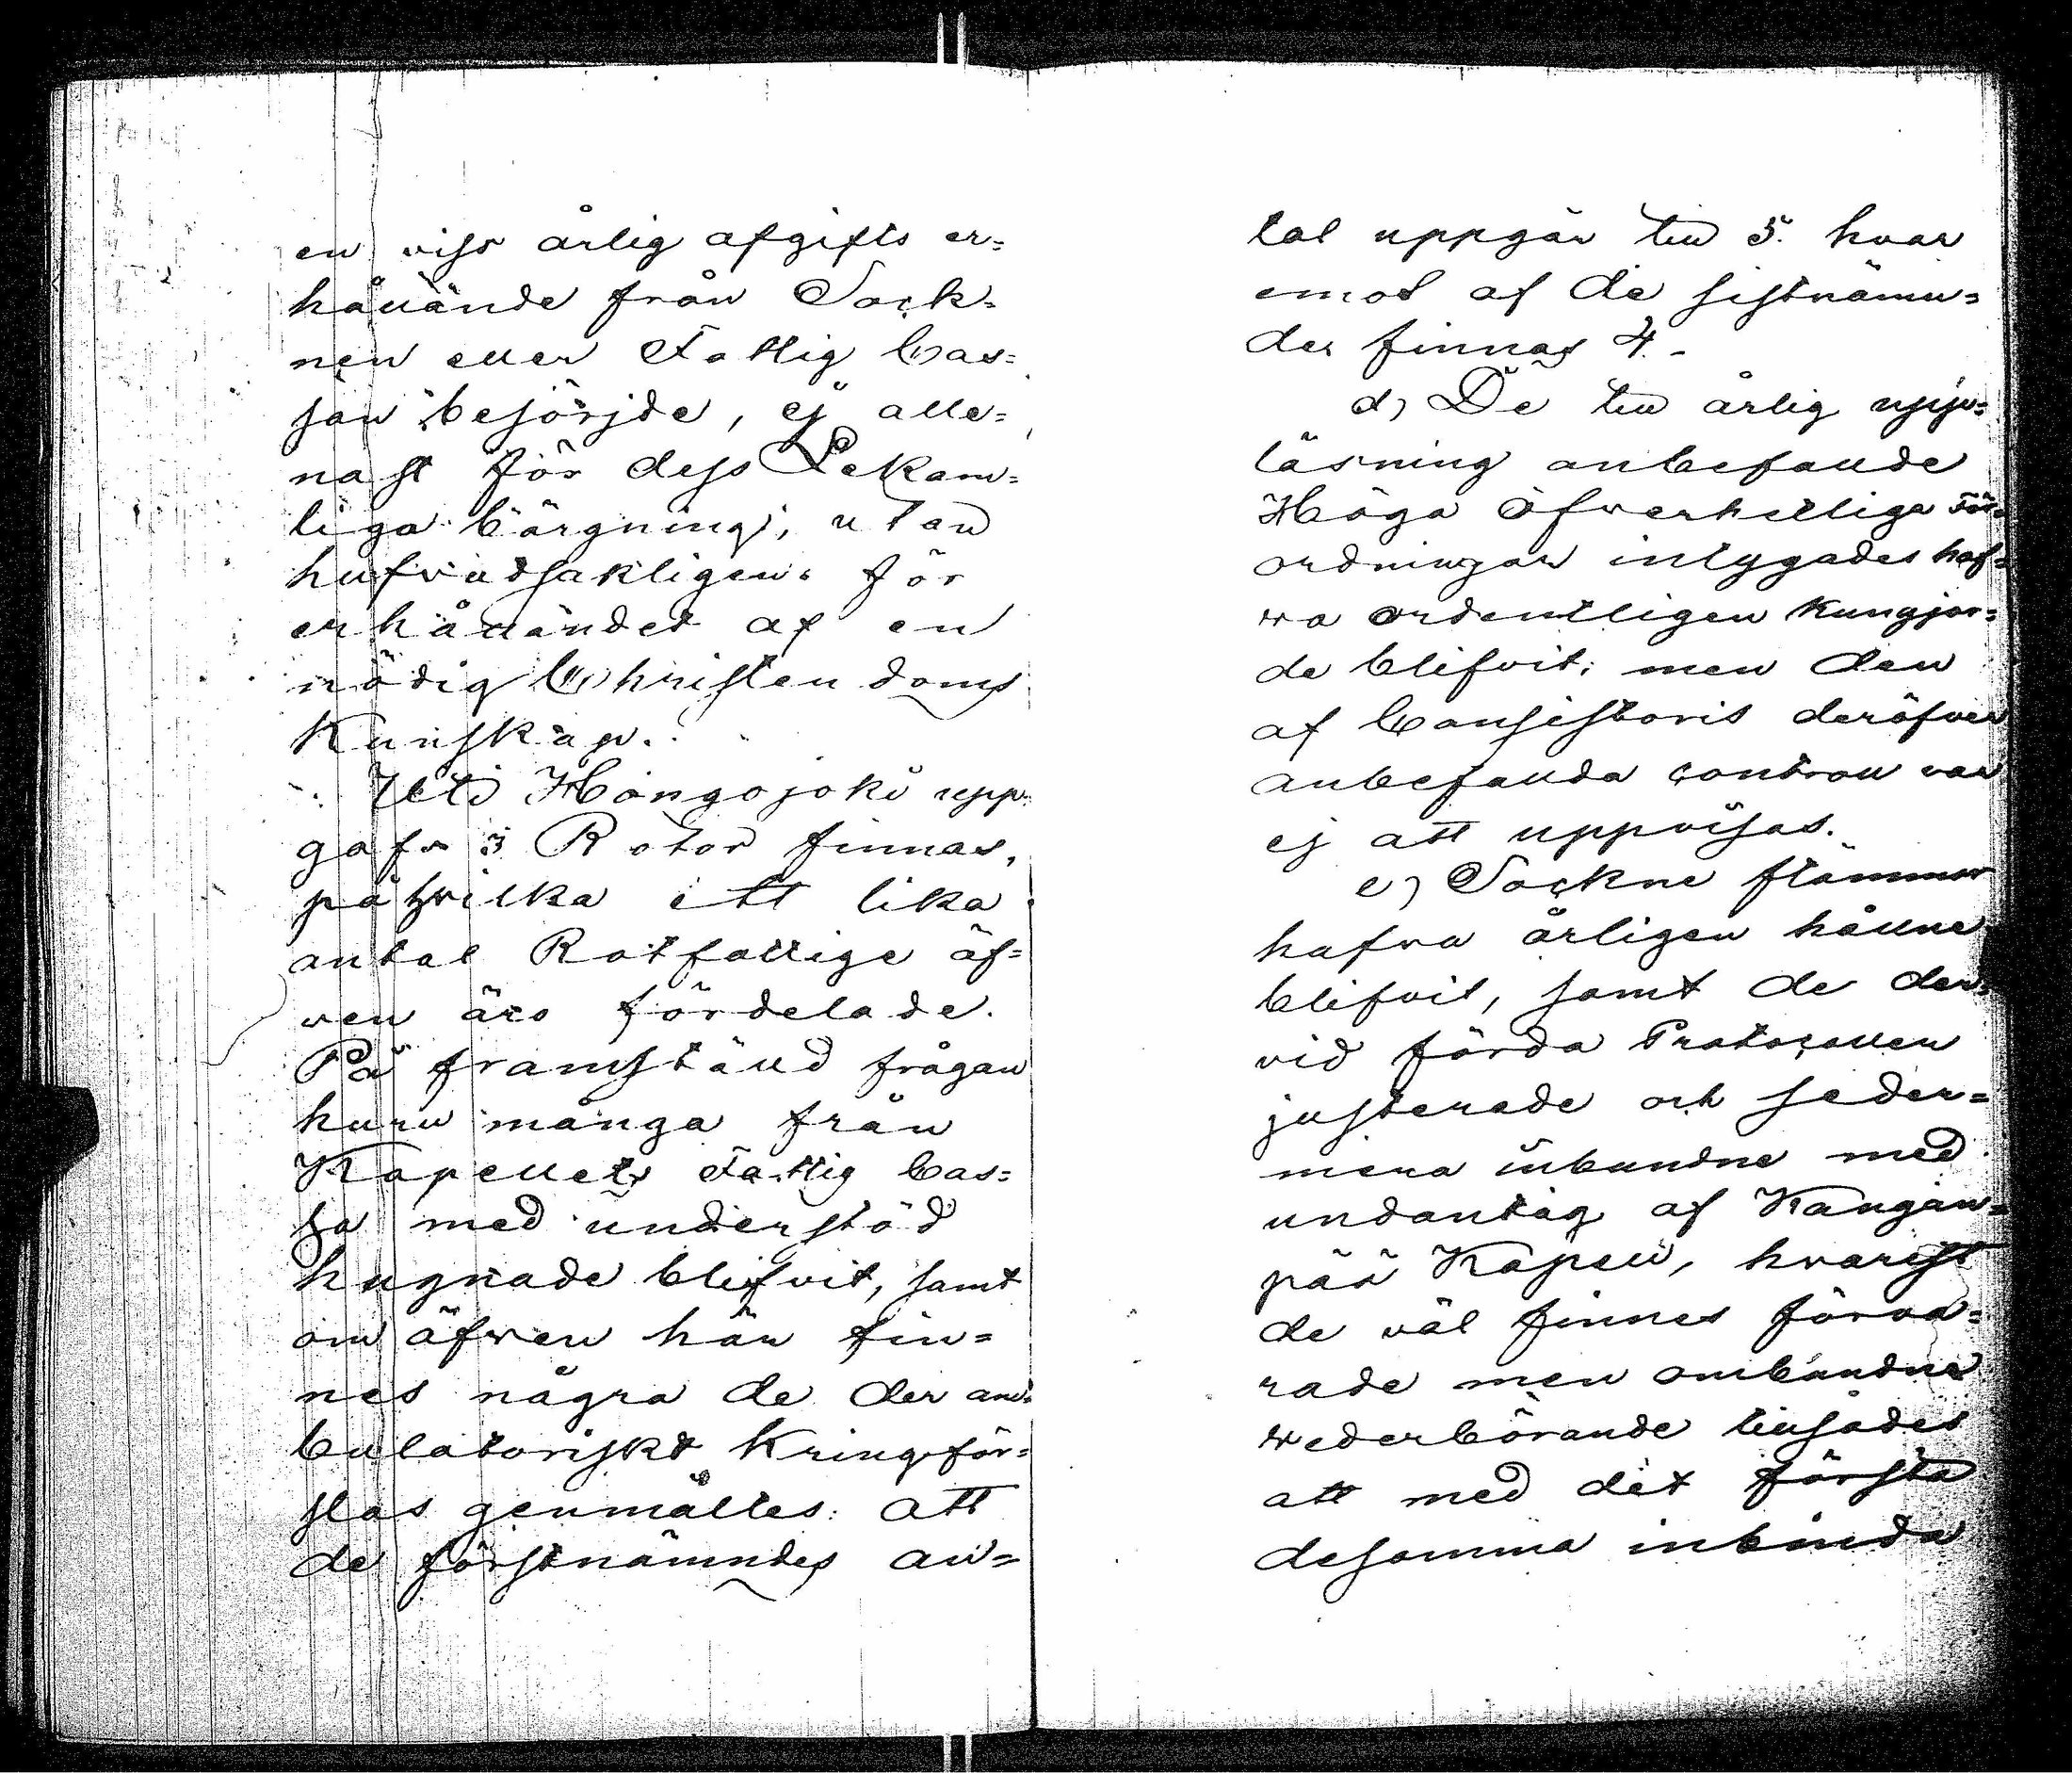 en viss årlig afgifts er=
hållande från Sock=
nen eller Fattig Cas=
san besörjde, ej alle=
nast för dess Lekam=
liga bärgning, utan
hufvudsakligen för
erhållandet af en
nödig Christendoms
Kunskap.
Uti Hongojoki upp=
gafs 3 Rotor finnas,
på hvilka ett lika
antal Rotfattige äf=
ven äro fördelade.
På framställd frågan
huru många från
Kapellets Fattig Cas=
sa med understöd
hugnade blifvit, samt
om äfven här fin=
nes några de der am=
bulatoriskt kringför=
slas genmältes: att
de förstnämndes an=
tal uppgår till 5. hvar
emot af de sistnämn=
des finnas 4.-
d) De till årlig upp=
läsning anbefallde
Höga Öfverhetliga För=
ordningar intygades haf=
va ordentligen kungjor=
de blifvit; men den
af Consistoris deröfver
anbefallda controll var
ej att uppvisas.
e) Sockne stämmor
hafva årligen hållne
blifvit, samt de der=
vid förda Protocollen
justerade och seder=
mera inbundne med
undantag af Kangan=
pää Kapell, hvarest
de väl finnes förva=
rade men ombundne
vederbörande tillsades
att med det första
desamma inbinda